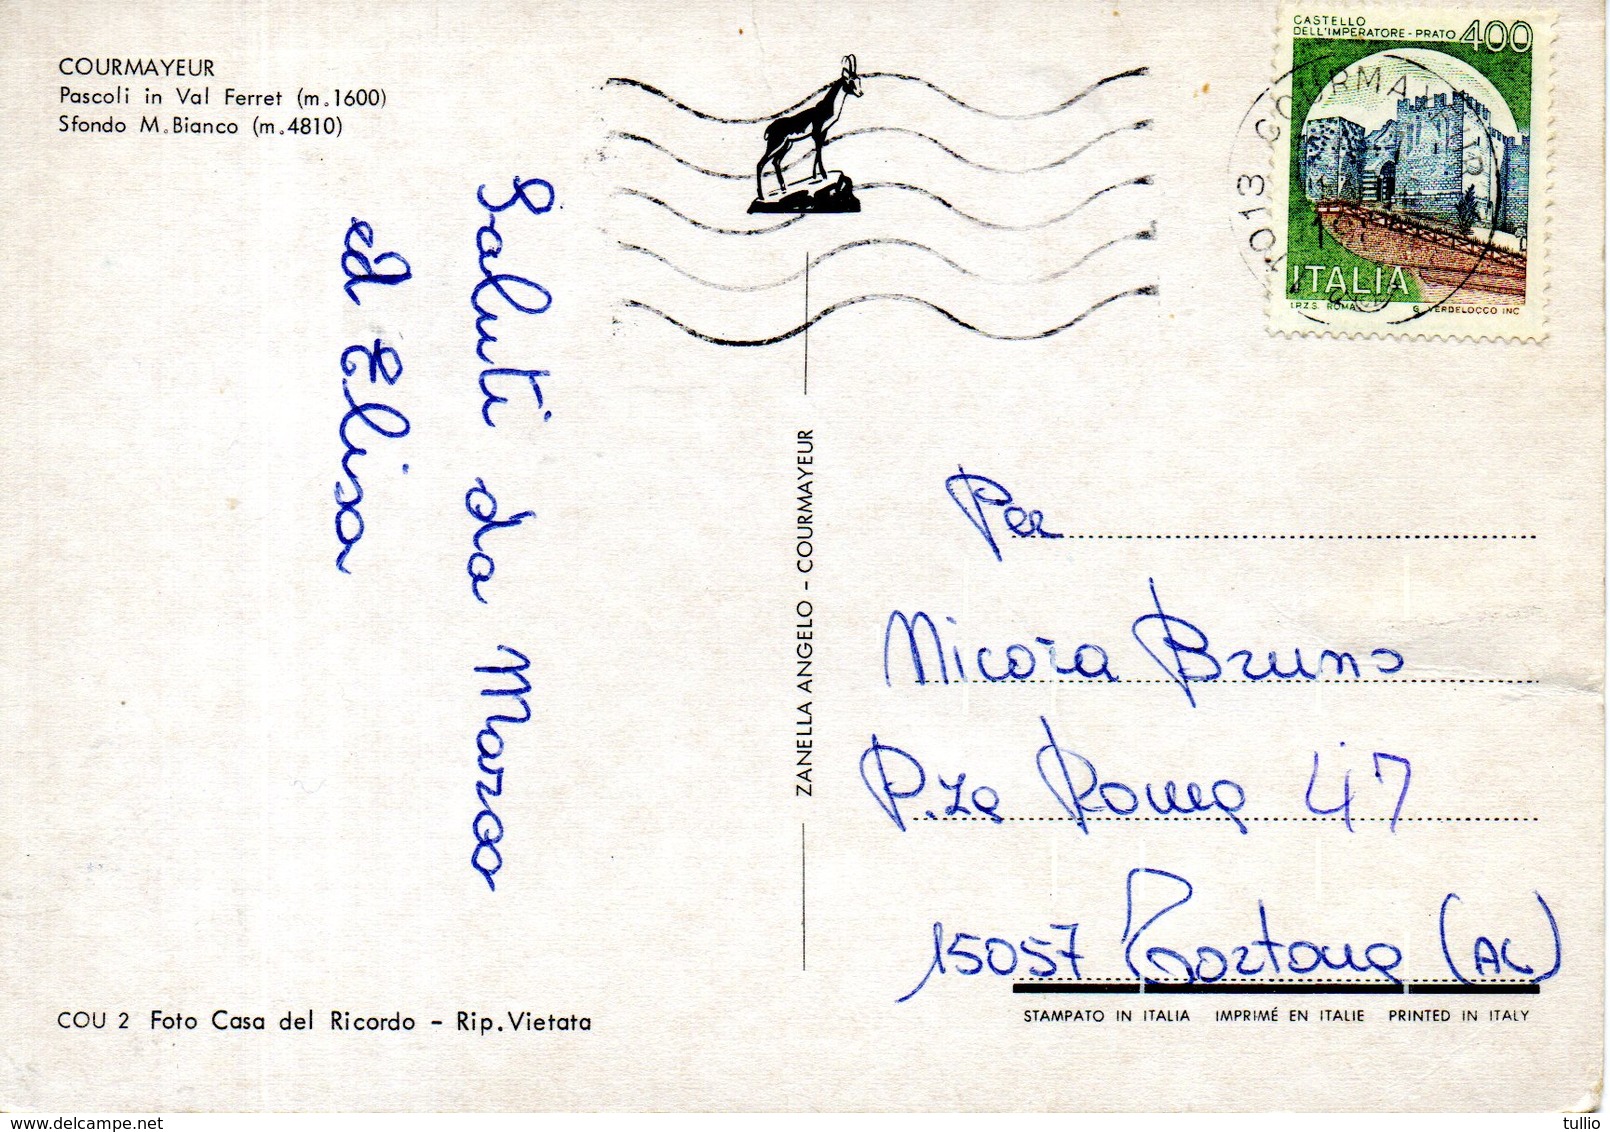 COURMAYEUR
Pascoli in Val Ferret (m.1600)
Sfondo M.Bianco (m.4810)
Saluti da Marzoo
ed Elisa
CASTELLO
DELL'IMPERATORE - PRATO 400
ITALIA
I.P.Z.S. ROMA G. VERDELOCCO INC
013 COURMAYEUR
ZANELLA ANGELO - COURMAYEUR
Per
Nicora Bruno
P.za Roma 47
15057 Tortona (AL)
COU 2 Foto Casa del Ricordo - Rip. Vietata
STAMPATO IN ITALIA IMPRIMÉ EN ITALIE PRINTED IN ITALY
tullio